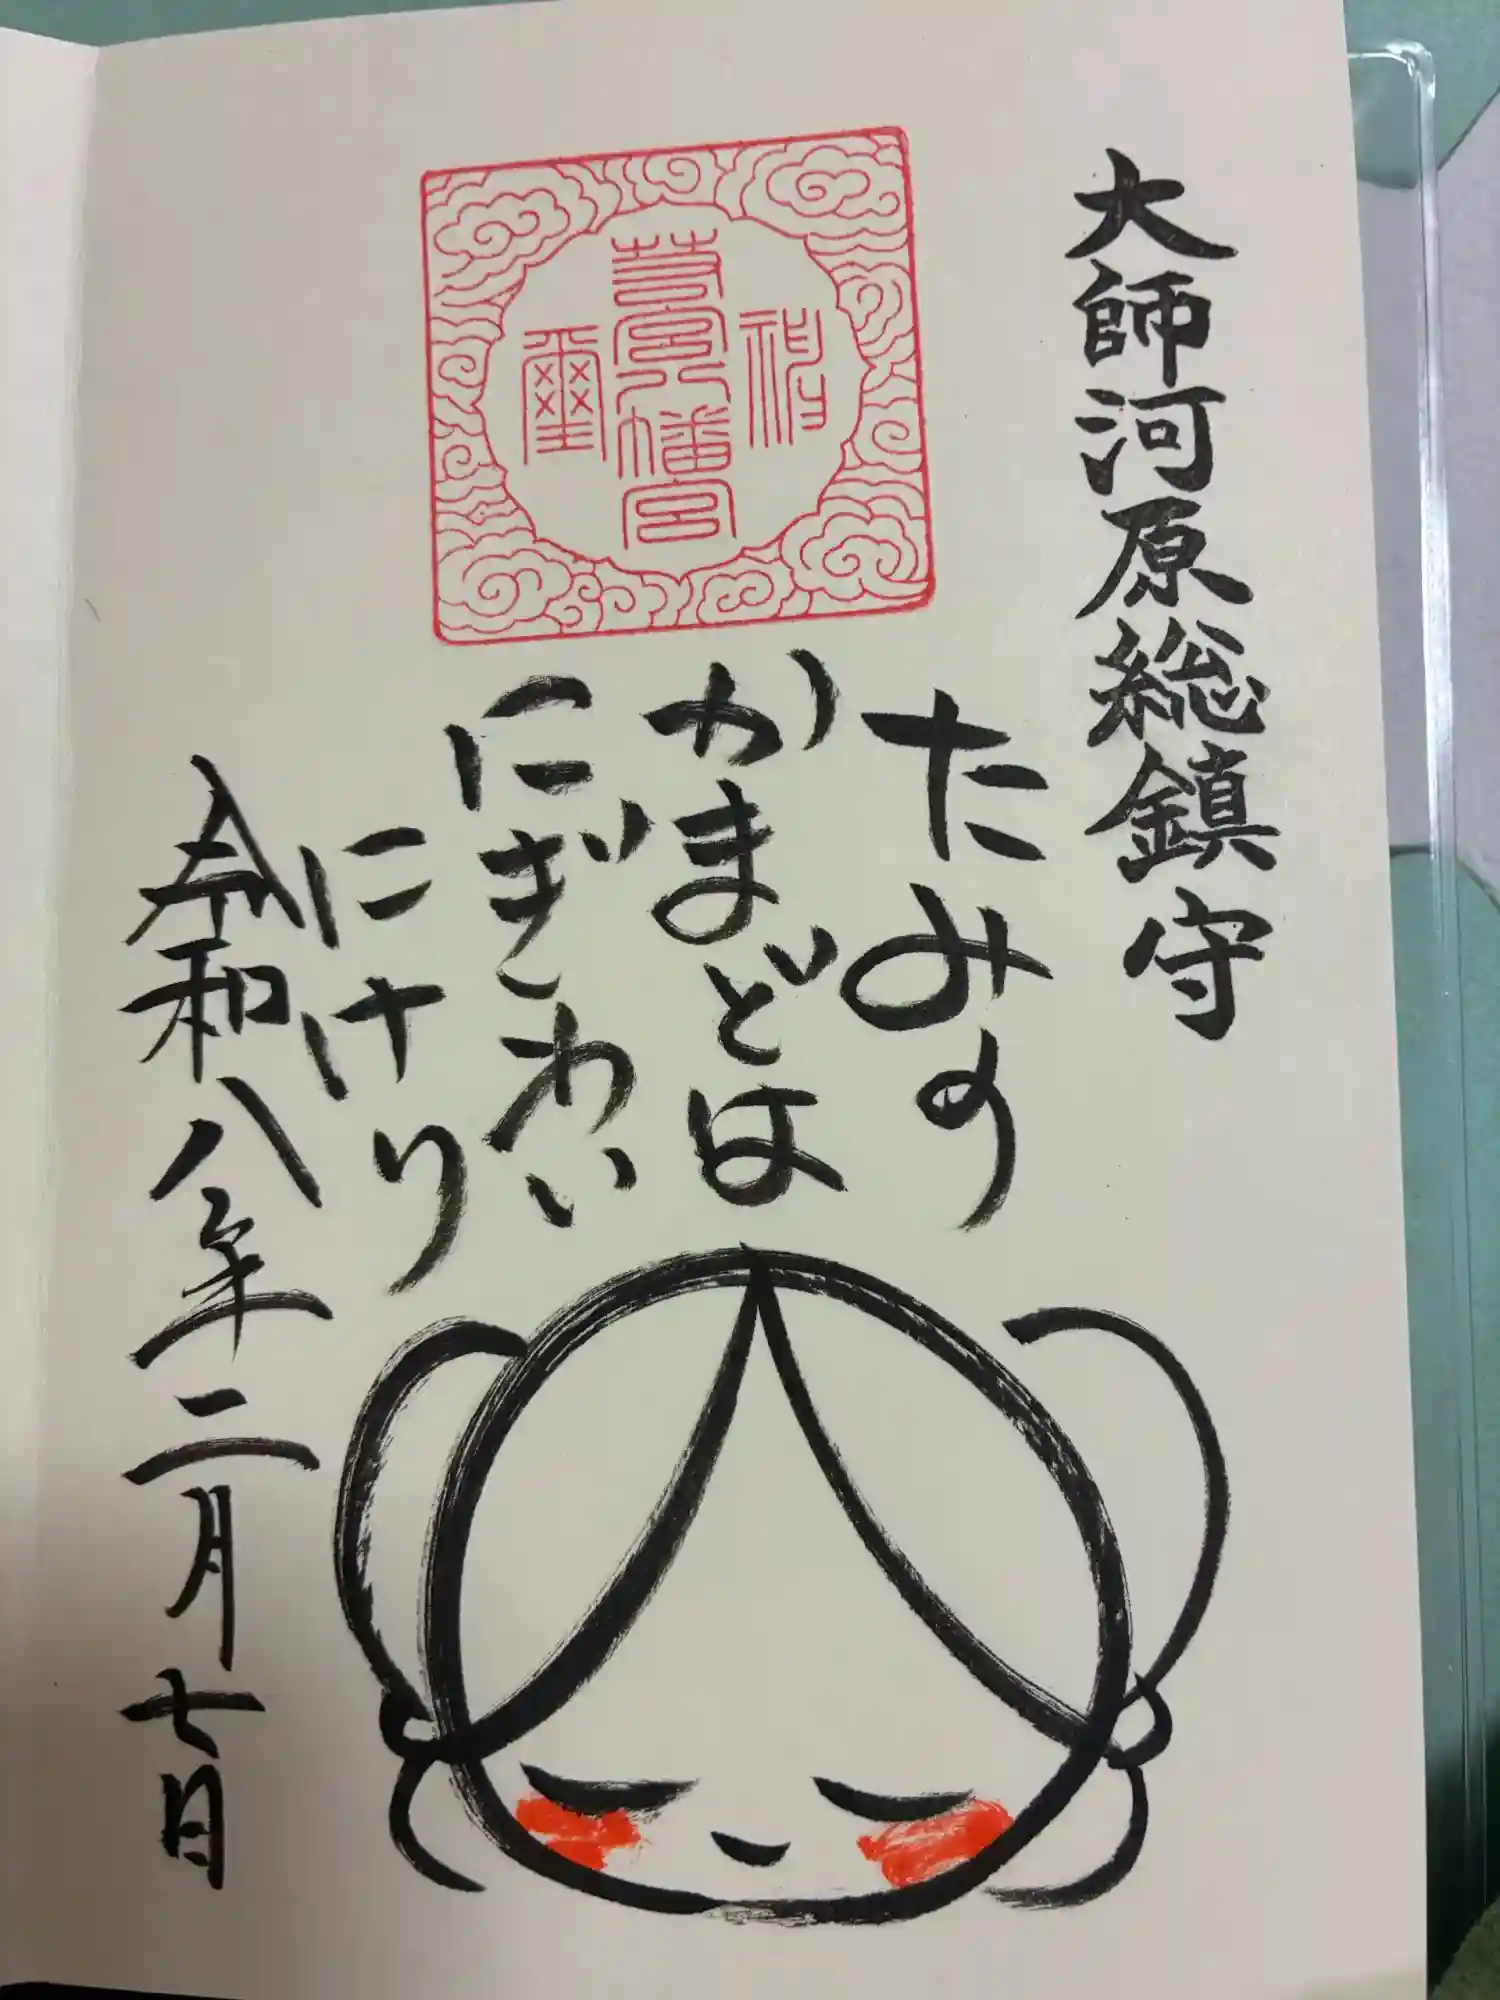 大師河原総鎮守
たみの
かまどは
にぎわい
にけり
令和八年二月七日
若宮八幡宮
神
璽